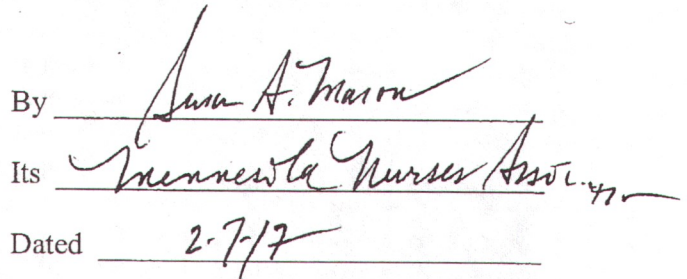 By Susan A. Mason
Its Minnesota Nurses Assoc.
Dated 2-7-17